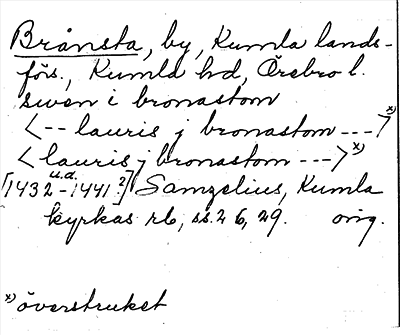 Brånsta, by, Kumla lands-
förs., Kumla hd, Örebro l.
swen i bronastom
<-- lauris j bronastom --->x)
<lauris j bronastom --->x)
[1432 u.a. -1441?] Samzelius, Kumla
kyrkas rb, ss. 26, 29. orig.
x) överstruket